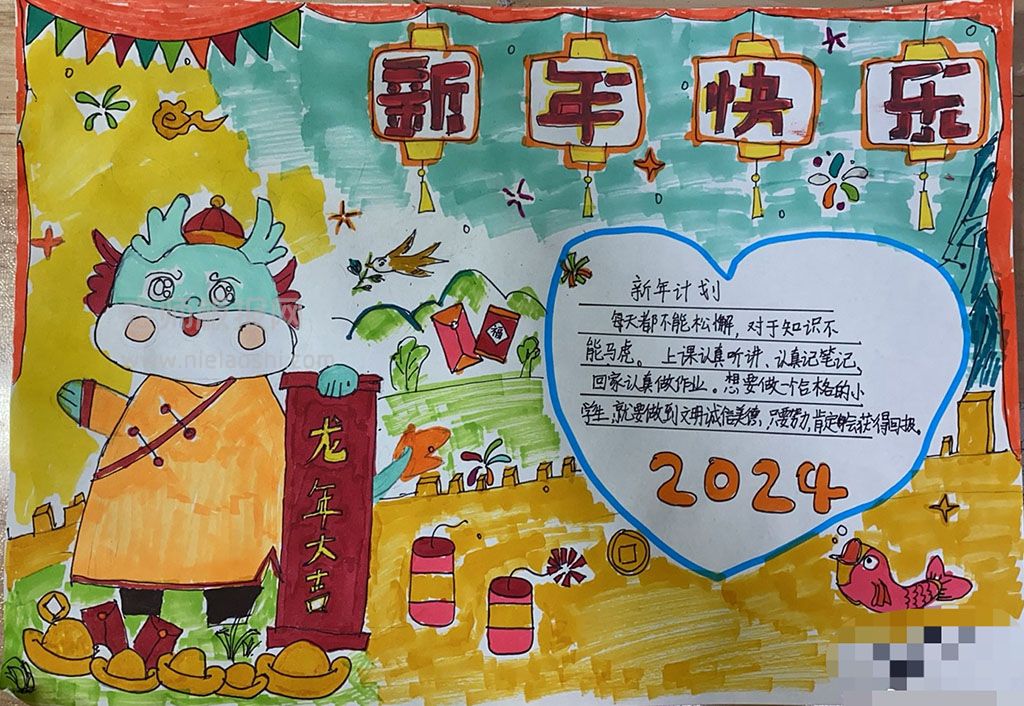 新年快乐
新年计划
每天都不能松懈,对于知识不
能马虎。上课认真听讲、认真记笔记,
回家认真做作业。想要做一个合格的小
学生,就要做到文明诚信美德,只要努力,肯定会获得回报。
2024
龙年大吉
福
www.nielaoshi.com